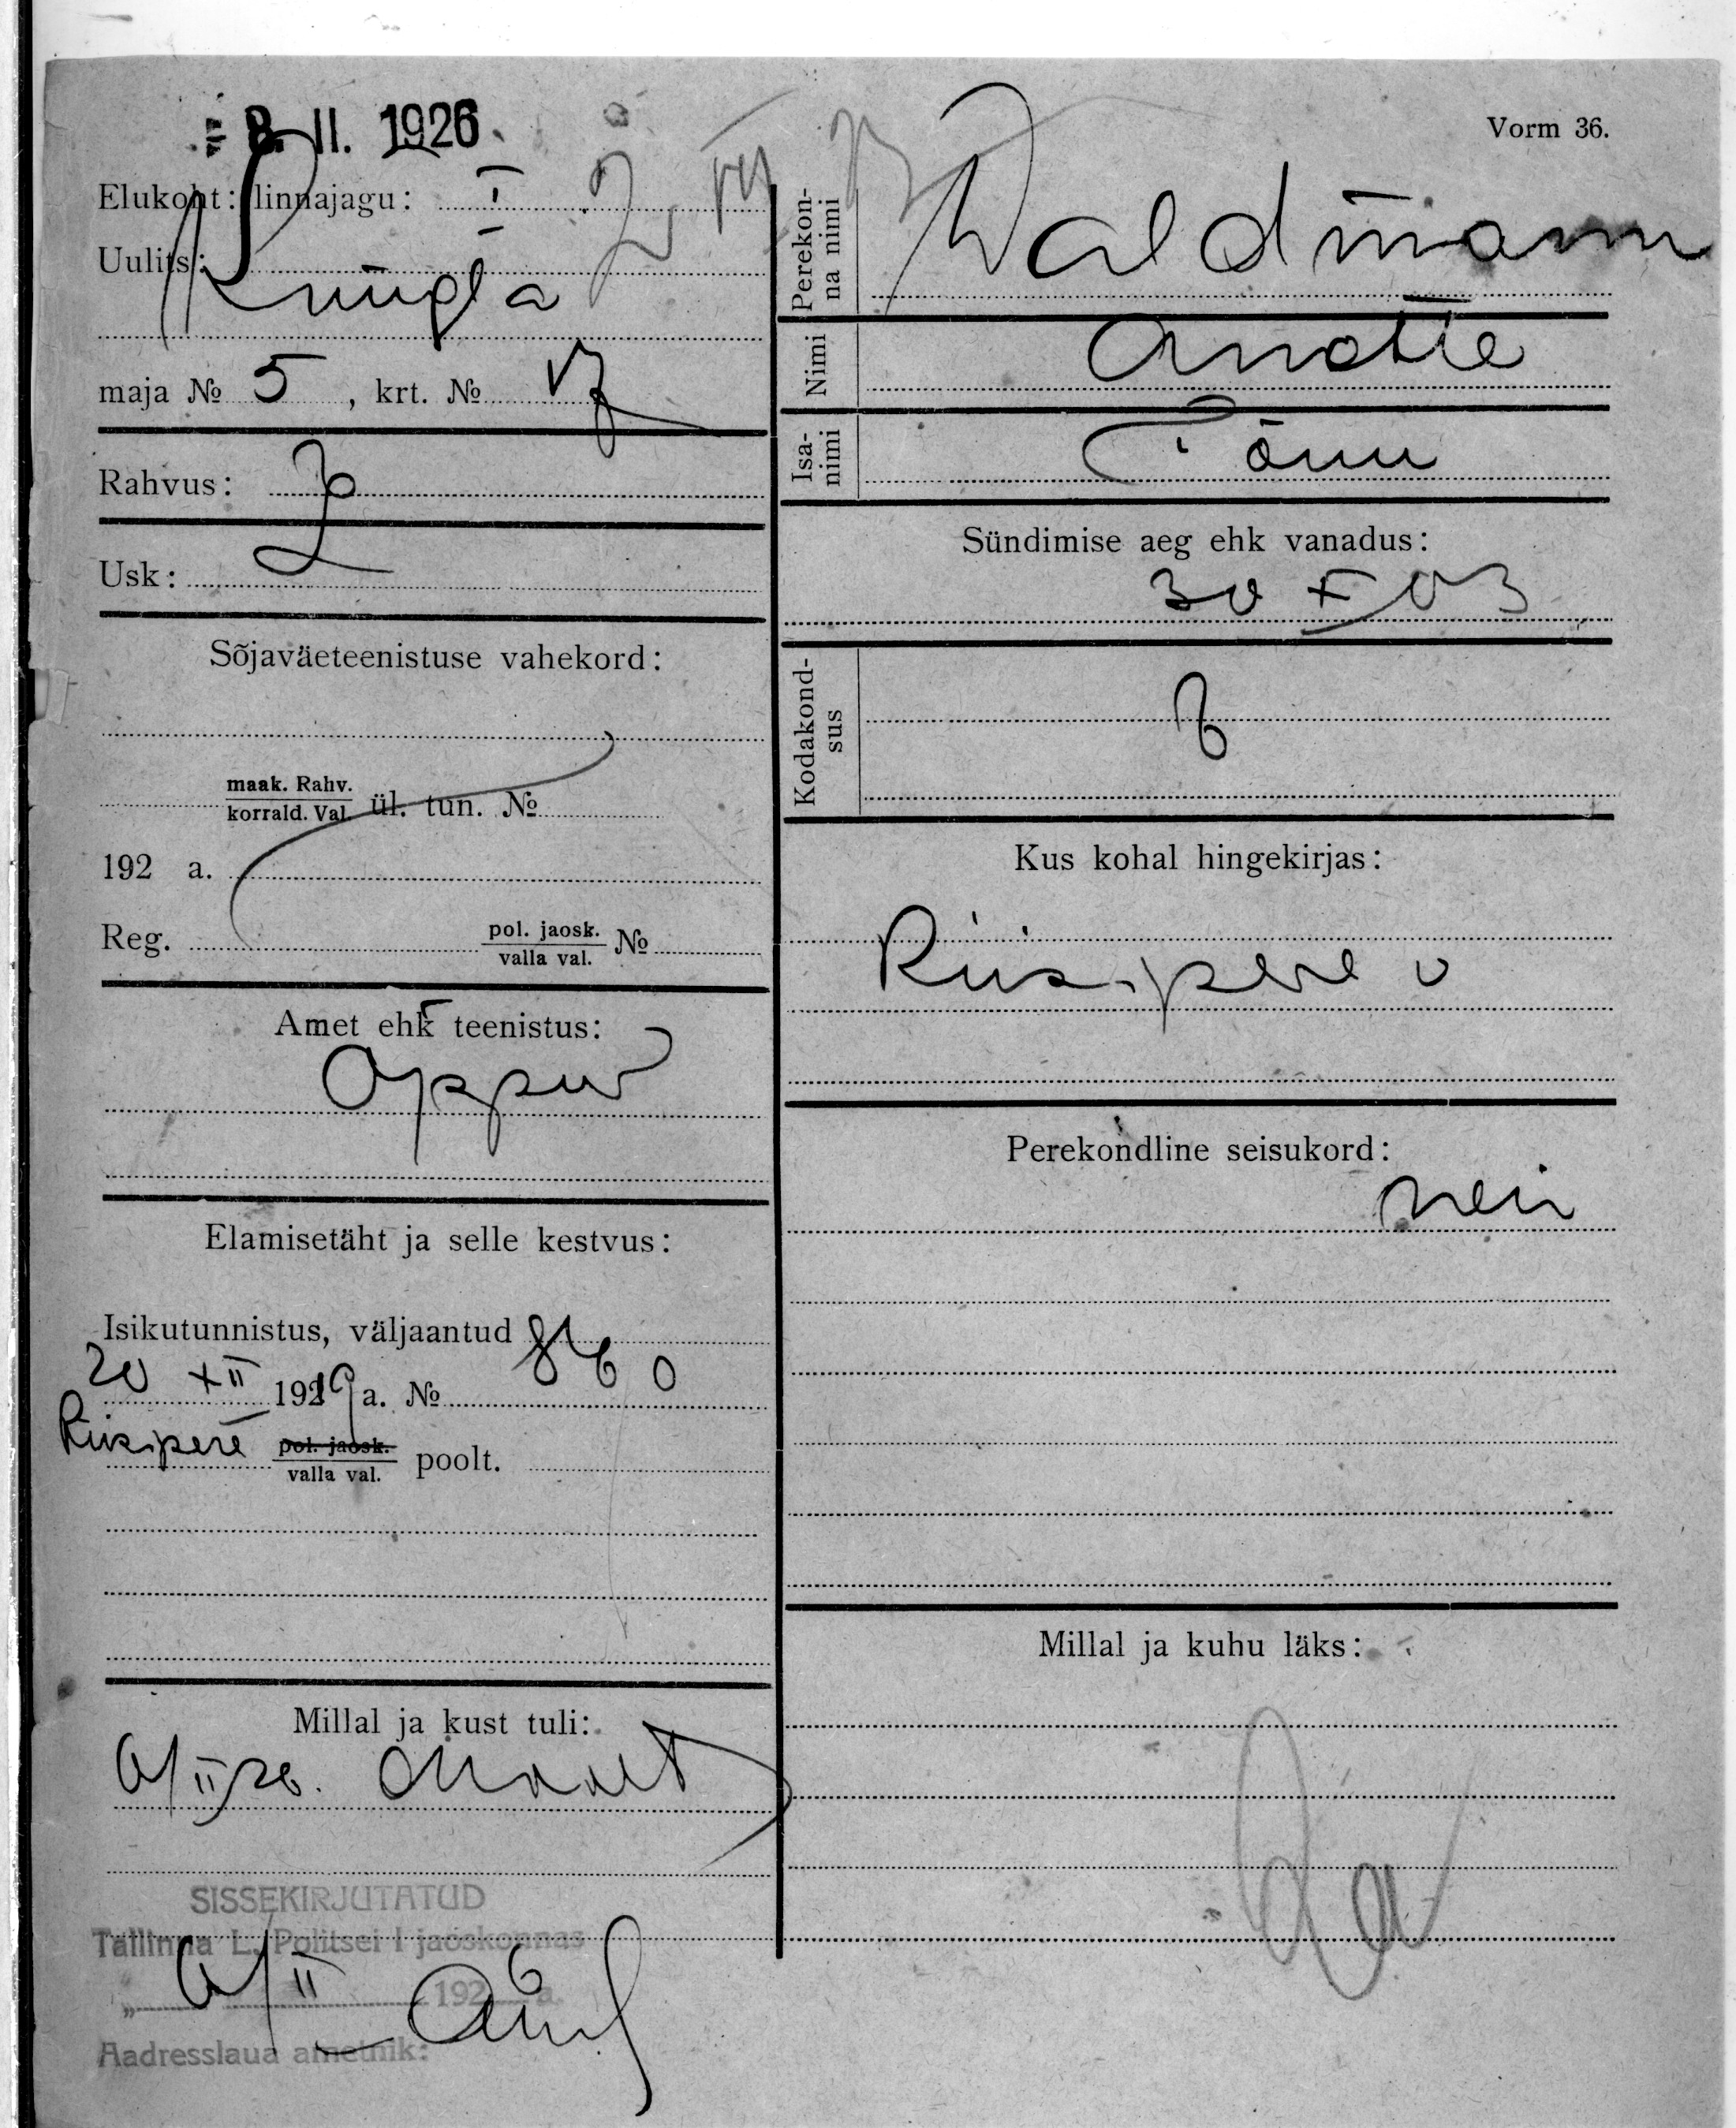 8. II. 1926
Vorm 36.
Elukoht: linnajagu: I
Uulits:
Küngla
maja № 5, krt. № 17
Rahvus:
Usk:
Sõjaväeteenistuse vahekord:
maak. Rahv.
korrald. Val. ül. tun. №
192 a.
Reg. pol. jaosk.
valla val. №
Amet ehk teenistus:
Õppur
Elamisetäht ja selle kestvus:
Isikutunnistus, väljaantud
20 XII 1919 a. № 8160
Riisipere pol. jaosk.
valla val. poolt.
Millal ja kust tuli:
6/II 26. Maalt
SISSEKIRJUTATUD
Tallinna L. Politsei I jaoskonnas
„ 6/II 1926 a.
Aadresslaua ametnik:
Perekonna nimi
Waldmann
Nimi
Anette
Isanimi
Tõnu
Sündimise aeg ehk vanadus:
30 X 03
Kodakondsus
Kus kohal hingekirjas:
Riisipere v
Perekondline seisukord:
neiu
Millal ja kuhu läks: